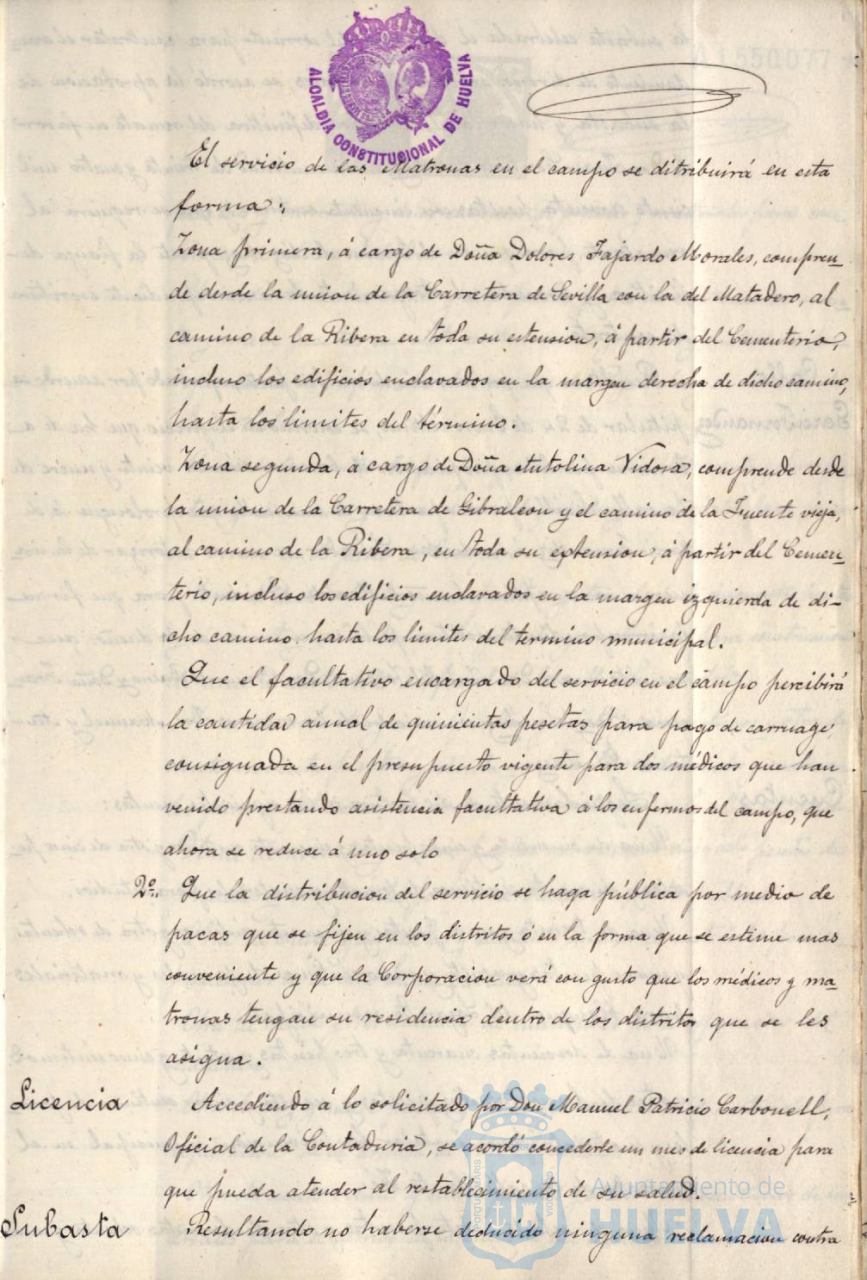 ALCALDIA CONSTITUCIONAL DE HUELVA
El servicio de las Matronas en el campo se ditribuirá en esta
forma:
Zona primera, á cargo de Doña Dolores Fajardo Morales, compren-
de desde la union de la Carretera de Sevilla con la del Matadero, al
camino de la Ribera en toda su estension, á partir del Cementerio,
incluso los edificios enclavados en la margen derecha de dicho camino,
hasta los limites del término.
Zona segunda, á cargo de Doña Antolina Vidosa, comprende desde
la union de la Carretera de Gibraleon y el camino de la Fuente vieja,
al camino de la Ribera, en toda su extension, á partir del Cemen-
terio, incluso los edificios enclavados en la margen izquierda de di-
cho camino hasta los limites del termino municipal.
Que el facultativo encargado del servicio en el campo percibirá
la cantidad anual de quinientas pesetas para pago de carruage,
consignada en el presupuesto vigente para dos médicos que han
venido prestando asistencia facultativa á los enfermos del campo, que
ahora se reduce á uno solo
2º. Que la distribucion del servicio se haga pública por medio de
pacas que se fijen en los distritos ó en la forma que se estime mas
conveniente y que la Corporacion verá con gusto que los médicos y ma-
tronas tengan su residencia dentro de los distritos que se les
asigna.
Licencia Accediendo á lo solicitado por Don Manuel Patricio Carbonell,
Oficial de la Contaduria, se acordó concederle un mes de licencia para
que pueda atender al restablecimiento de su salud.
Subasta Resultando no haberse deducido ninguna reclamacion contra
Ayuntamiento de
HUELVA